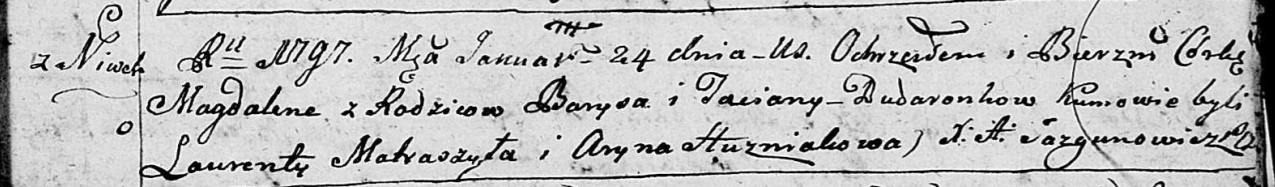 z Niwek Rᵘ 1797. Mca Januar 24 dnia Us. Ochrzciłem i Bierzm Córkę
Magdalene z Rodzicow Barysa i Taciany Dudaronkow Kumowie byli
Laurenty Matraszyła i Aryna Huzniakowa) X: A: Jazgunowicz